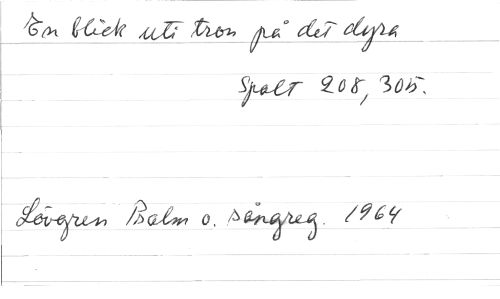 En blick uti tron på det dyra
Spalt 208, 305.
Lövgren Psalm o. sångreg. 1964